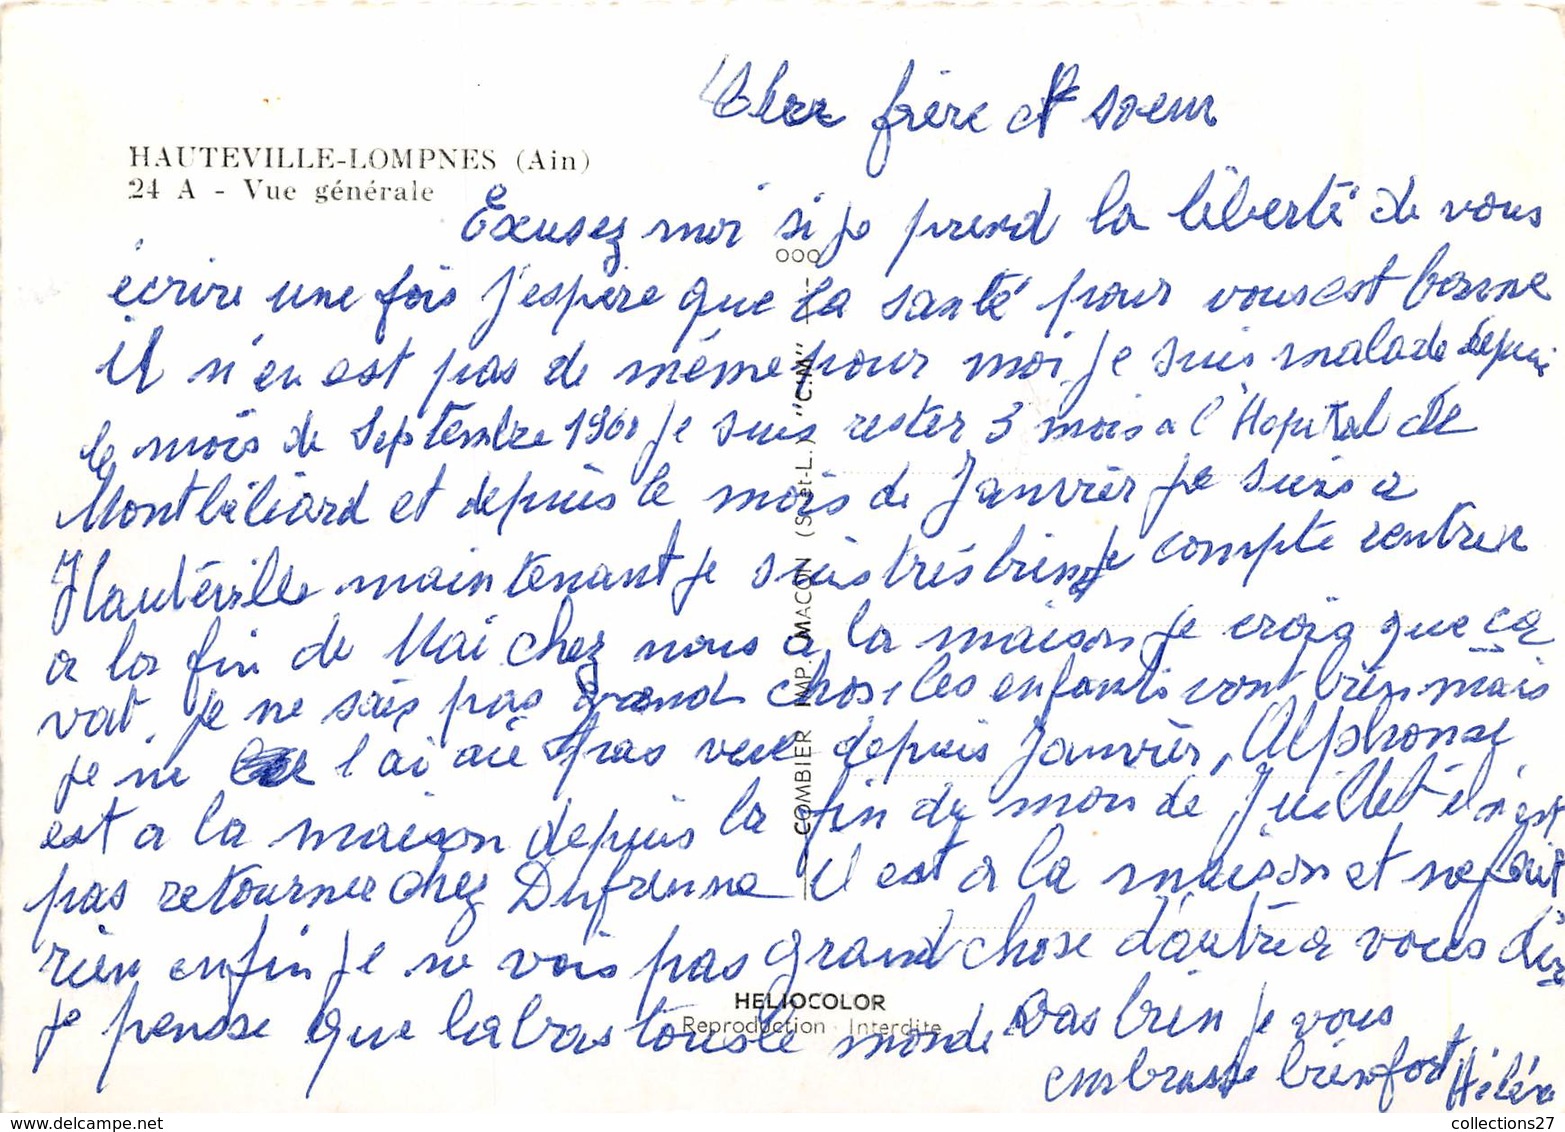 Cher frère et soeur
HAUTEVILLE-LOMPNES (Ain)
24 A - Vue générale
Exusez moi si je prend la liberté de vous
écrire une fois j'espère que la santé pour vous est bonne
il n'en est pas de même pour moi je suis malade depuis
le mois de Septembre 1960 je suis rester 3 mois a l'Hopital de
Montbéliard et depuis le mois de Janvier je suis a
Hautéville maintenant je suis très bien je compte rentrer
a la fin de Mai chez nous a la maison je crois que ça
vat, je ne sais pas grand chose les enfants vont bien mais
je ne l'ai aie pas vue depuis Janvier, Alphonse
est a la maison depuis la fin du mois de Juillet il n'est
pas retourner chez Dufrenne il est a la maison et ne fait
rien enfin je ne vois pas grand chose d'autre a vous dire
je pensse que labas tousle monde vas bien je vous
embrasse bien fort Hélène
COMBIER IMP. MACON (S.-et-L.) "CIM"
HELIOCOLOR
Reproduction Interdite
collections27